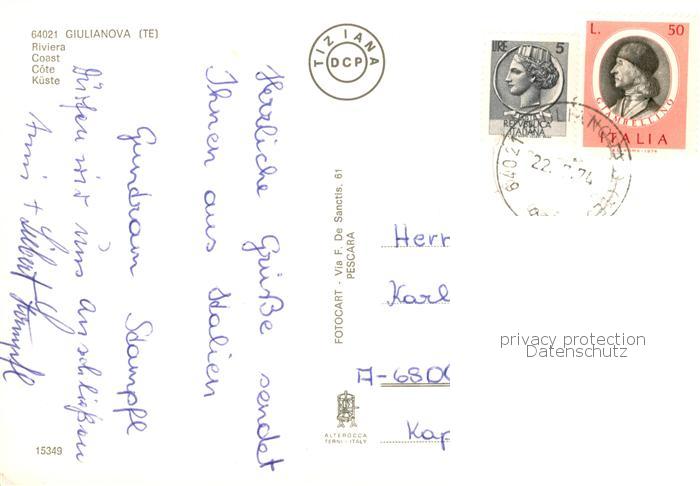 64021 GIULIANOVA (TE)
Riviera
Coast
Côte
Küste
Herrliche Grüße sendet
Ihnen aus Italien
Gundram Stampfl
Dürfen wir uns anschließen
Anni + Hubert Stampfl
15349
TIZIANA
DCP
FOTOCART - Via F. De Sanctis, 61
PESCARA
ALTEROCCA
TERNI - ITALY
LIRE 5
REPVBBLICA
ITALIANA
L. 50
GIAMBELLINO
ITALIA
64021
Herr
Karl
A-680
Kap
privacy protection
Datenschutz